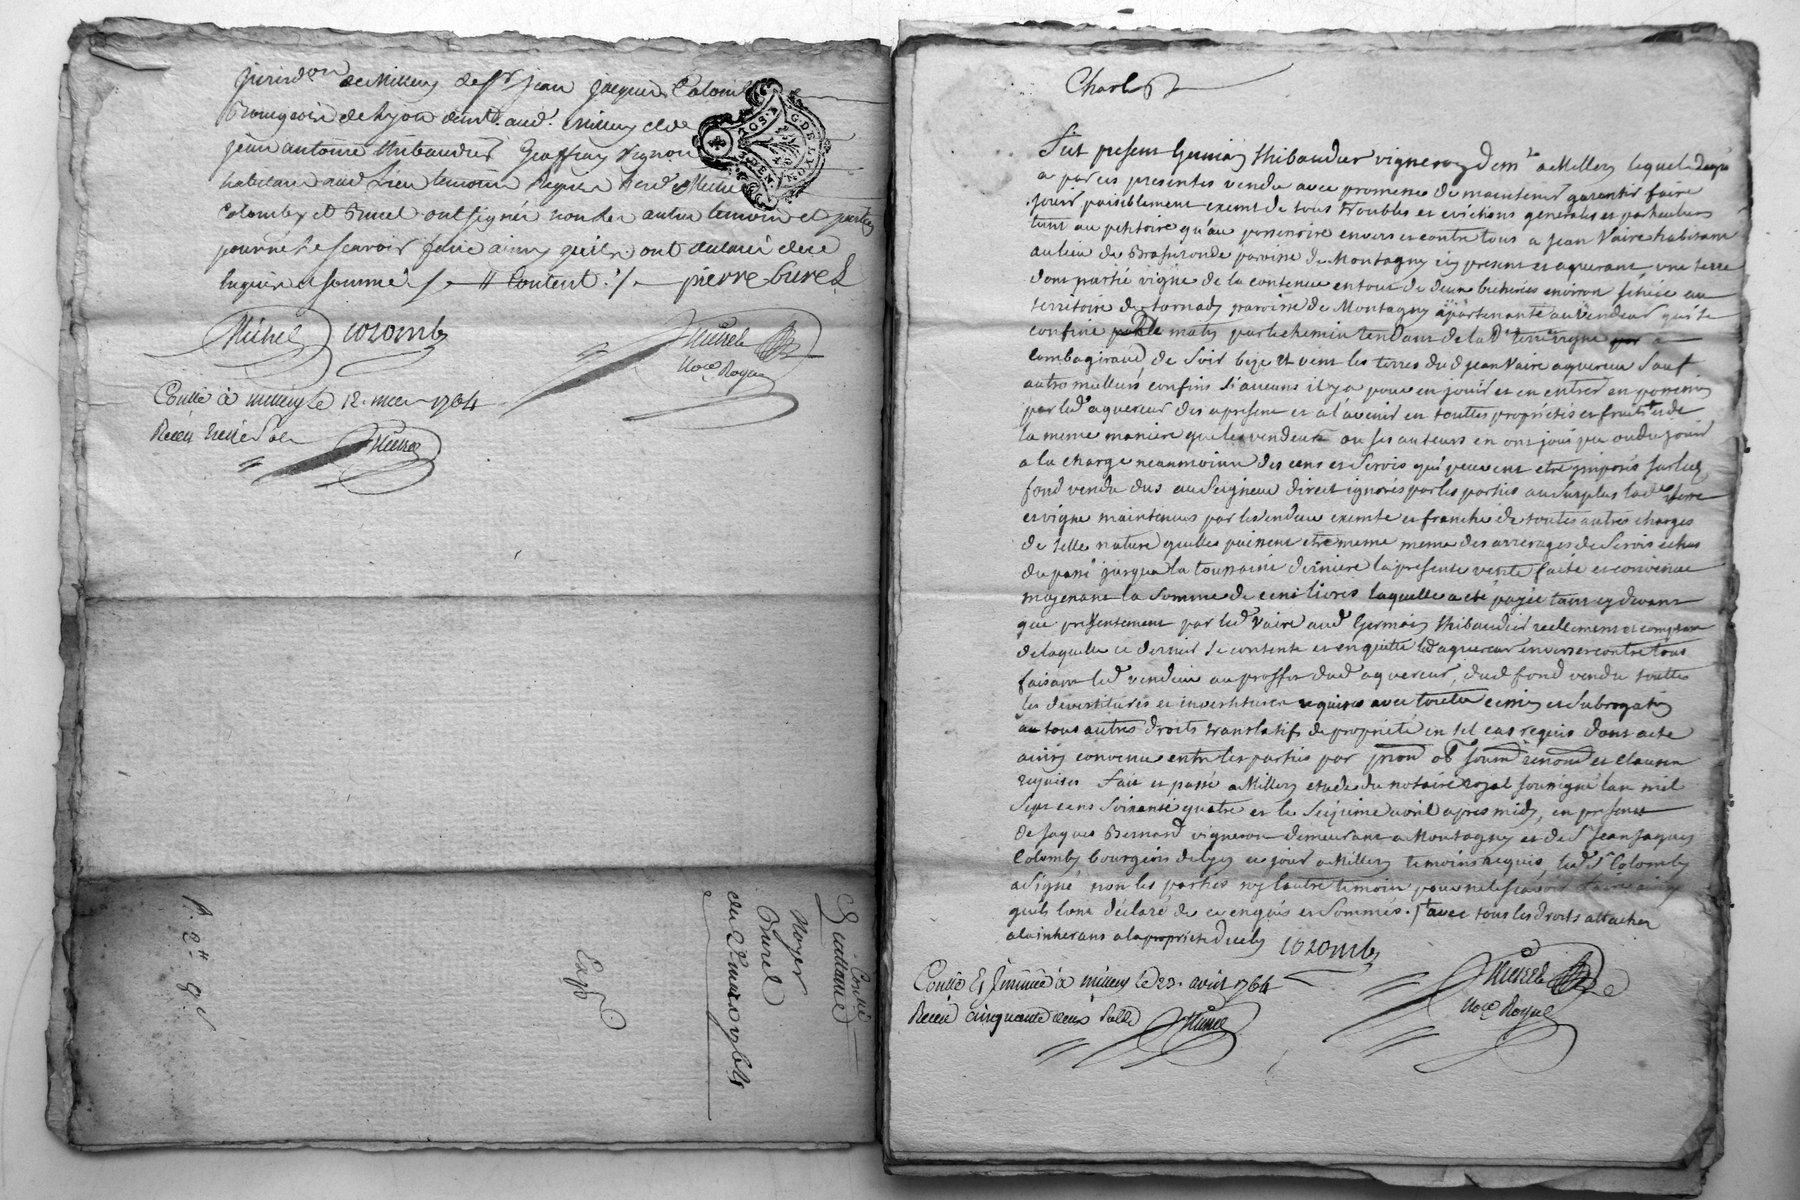 de Millery de Sr jean jacques Colomb
Bourgeois de Lyon demt. aud. Millery et de
jean antoine thibaudier Geoffray Vignon
habitans aud. Lieu temoins Requis led. Michel
Colomb et Burel ont signés non les autres temoin et parties
pour ne le scavoir faire ainsy qu'ils ont declaré de ce
enquis et sommé / Content / pierre burel
Michel colomb
Nore Royal
Conllé à millery le 12. mars 1764
Receu treize sols
G. DE LYON
Conllé
Quittance
Noyer
Burel
du mars 1764
Expé
Fut present Germain thibaudier vigneron demt a Millery lequel de gré
a par ces presentes vendu avec promesse de maintenir garentir faire
jouir paisiblement exemt de tous troubles et evictions generales et particuliers
tant au petitoire qu'au possessoire envers et contre tous a jean Vaire habitant
au lieu de paroisse de Montagny icy present et aquerant, une terre
dont partie vigne de la contenue en tout de deux bicherées environ scituée au
territoire de tornady paroisse de Montagny apartenante au vendeur qui se
confine matin par le chemin tendant de la d. terre vigne a
Combagiraud, de soir bize et vent les terres dud jean Vaire aquereur sauf
autres meilleurs confins si aucuns il y a pour en jouir et en entrer en possession
par led. aquereur des apresent et a l'avenir en touttes proprietés et fruits et de
la meme maniere que le vendeur ou ses auteurs en ont joui pu ou du jouir
a la charge neanmoins des cens et servis qui peuvent etre imposés sur led
fond vendu dus au Seigneur direct ignorés par les parties au surplus lade terre
et vigne maintenues par le vendeur exemte et franche de toutes autres charges
de telle nature quelles puissent etre meme meme des arrerages de servis echus
du passé jusqua la toussaint derniere la presente vente faite et convenue
moyenant la somme de cent livres laquelle a eté payée tant cy devant
que presentement par led Vaire aud Germain thibaudier reellement et comptant
de laquelle ce dernier se contente et en quitte led aquereur envers et contre tous
faisant led vendeur au proffit dud aquereur, dud fond vendu touttes
les devestitures et investitures requises avec toutte cession et subrogation
au tous autres droits translatifs de proprieté en tel cas requis dont acte
ainsy convenu entre les parties par prom ob soum renon et clauses
requises fait et passé a Millery etude du notaire royal soussigné l'an mil
sept cens soixante quatre et le seizieme avril apres midy, en presence
de jaques Bernard vigneron demeurant a Montagny et de Sr Jean jaques
Colomby bourgeois de Lyon ce jour a Millery temoins requis, led Sr Colomby
a signé non les parties ny l'autre temoin pour ne le scavoir faire ainsy
quils l'ont déclaré de ce enquis et sommés. / avec tous les droits attachés
a la proprieté dicelly colomb
Conllé Et Insinué à millery le 23. avril 1764
Receu cinquante deux sols
Nore Royal